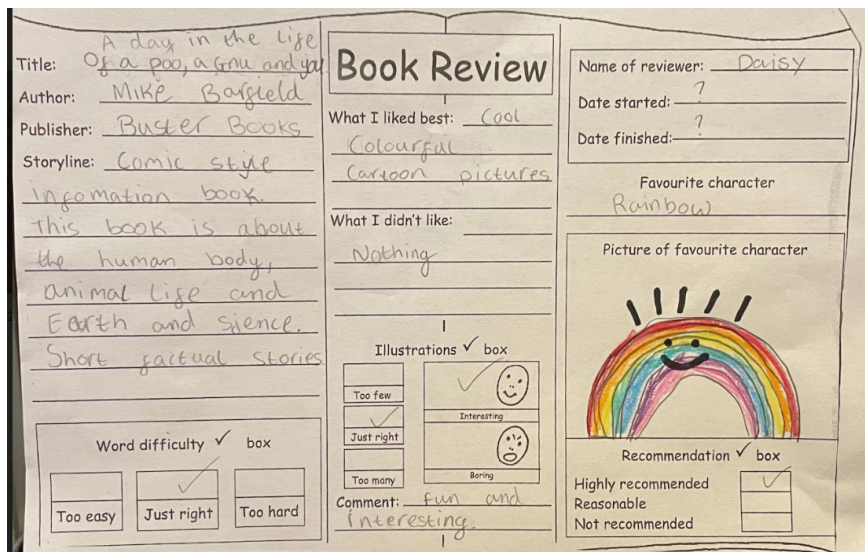 A day in the life
Title: Of a poo, a Gnu and you
Author: Mike Barfield
Publisher: Buster Books
Storyline: Comic style
infomation book.
This book is about
the human body,
animal life and
Earth and sience.
Short factual stories
Word difficulty ✓ box
Too easy
Just right
Too hard
Book Review
What I liked best: Cool
Colourful
Cartoon pictures
What I didn't like:
Nothing
Illustrations ✓ box
Too few
Just right
Too many
Interesting
Boring
Comment: fun and
interesting.
Name of reviewer: Daisy
Date started: ?
Date finished: ?
Favourite character
Rainbow
Picture of favourite character
Recommendation ✓ box
Highly recommended
Reasonable
Not recommended